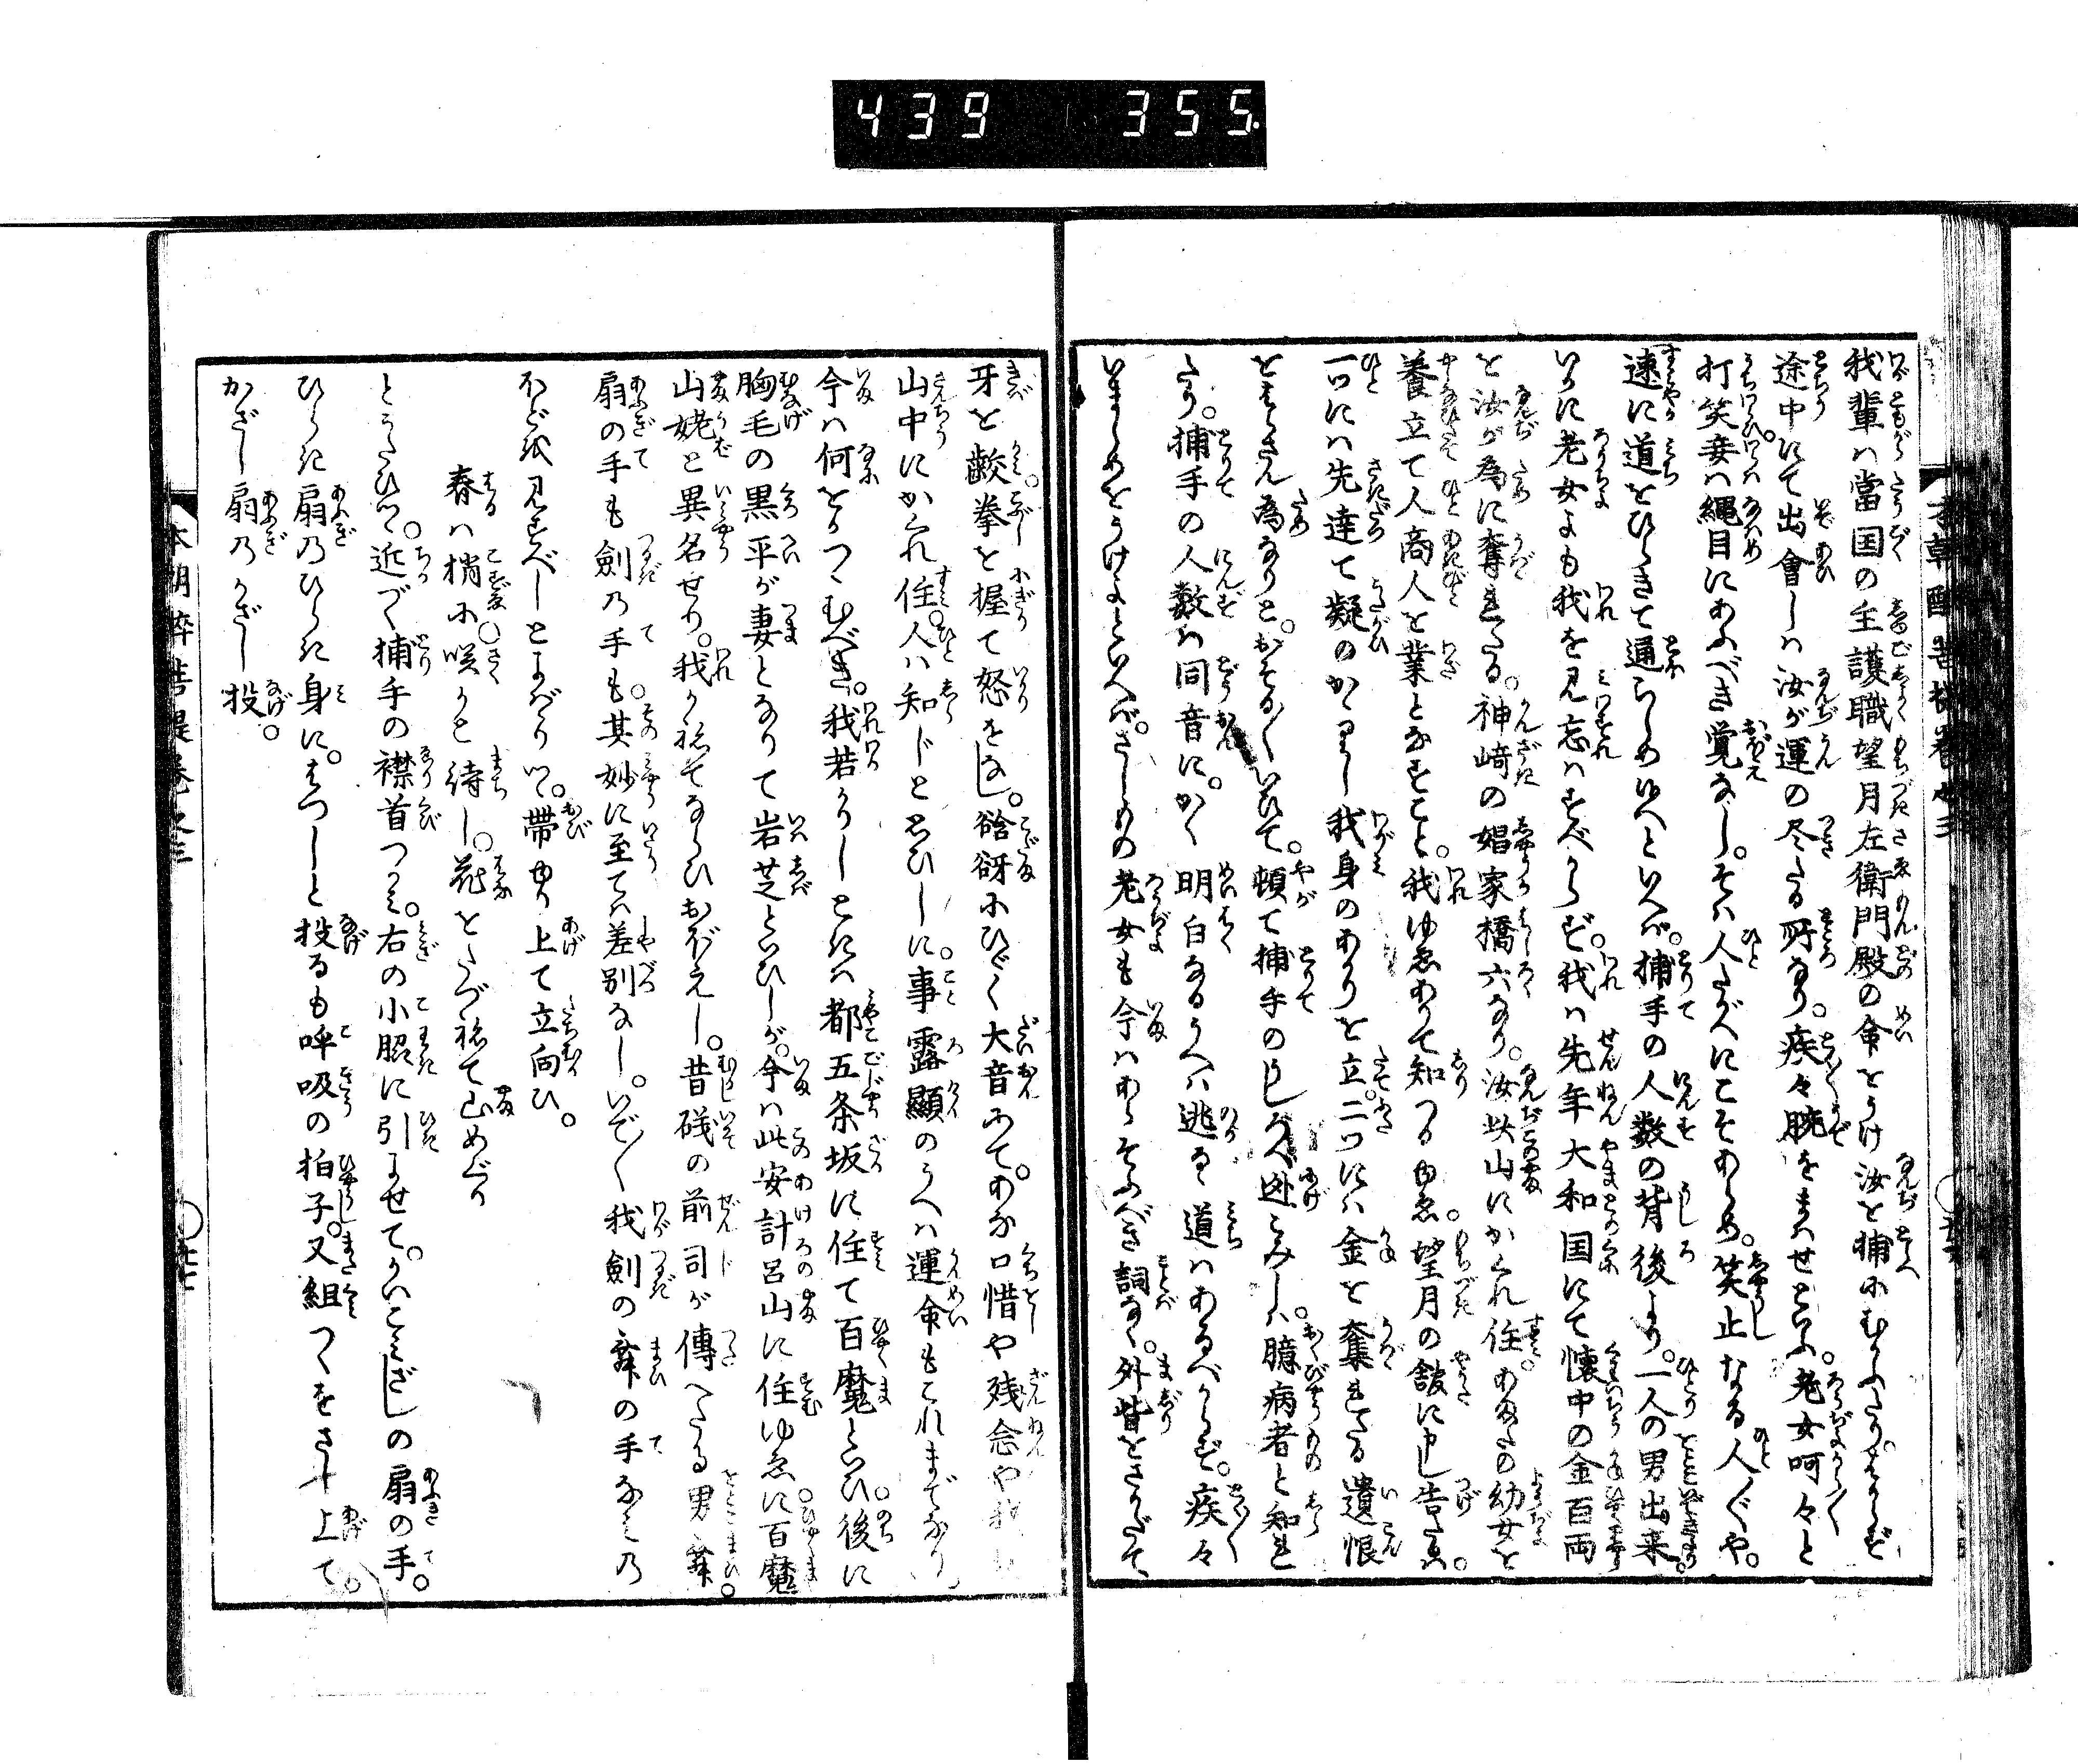 439 355
我輩は當国の主護職望月左衛門殿の命をうけ汝を捕にむかふたりはからず
途中にて出會しは汝が運の尽たる所なり。疾々腕をまはせといふ。老女呵々と
打笑妾は縄目にあふべき覚なし。そは人たがへにこそあらめ。笑止なる人〲や。
速に道をひらきて通らしめ給へといへば。捕手の人数の背後より。一人の男出来。
いかに老女よも我を見忘はすべからず。我は先年大和国にて懐中の金百両
を汝が為に奪れたる。神崎の娼家橋六なり。汝此山にかくれ住。あまたの幼女を
養立て人商人を業となすこと。我ゆゑありて知つるゆゑ。望月の舘に申し告たり。
一ツには先達て疑のかゝりし我身のあかりを立。二ツには金を奪れたる遺恨
をはらさん為なりと。おそる〱いひて。頓て捕手のうしろへ迯こみしは。臆病者と知れ
たり。捕手の人数は同音に。かく明白なるうへは逃るゝ道はあるべからず。疾々
いましめをうけよといへば。さしもの老女も今はあらそふべき詞なく。外眥をさかだて
牙を齩拳を握て怒をなし。谽谺にひゞく大音あげて。あな口惜や残念や我
山中にかくれ住。人は知じと思ひしに。事露顯のうへは運命もこれまでなり
今は何をかつゝむべき。我若かりしときは都五条坂に住て百魔といひ後に
胸毛の黒平が妻となりて岩芝といひしが。今は此安計呂山に住ゆゑに百魔
山姥と異名せり。我かねてならひおぼえし。昔礒の前司が傳へたる男舞。
扇の手も劍の手も。其妙に至ては差別なし。いで〱我劍の舞の手なみの
ほどを見すべしとよばゝりつ。帯ゆり上て立向ひ。
春は梢に咲かと待し。花をたづねて山めぐり
とうたひつゝ。近づく捕手の襟首つかみ。右の小腕に引よせて。かいこみざしの扇の手。
ひらき扇のひらき身に。はつしと投るも呼吸の拍子。又組つくをさし上て。
かざし扇のかざし投。
本朝酔菩提巻之三